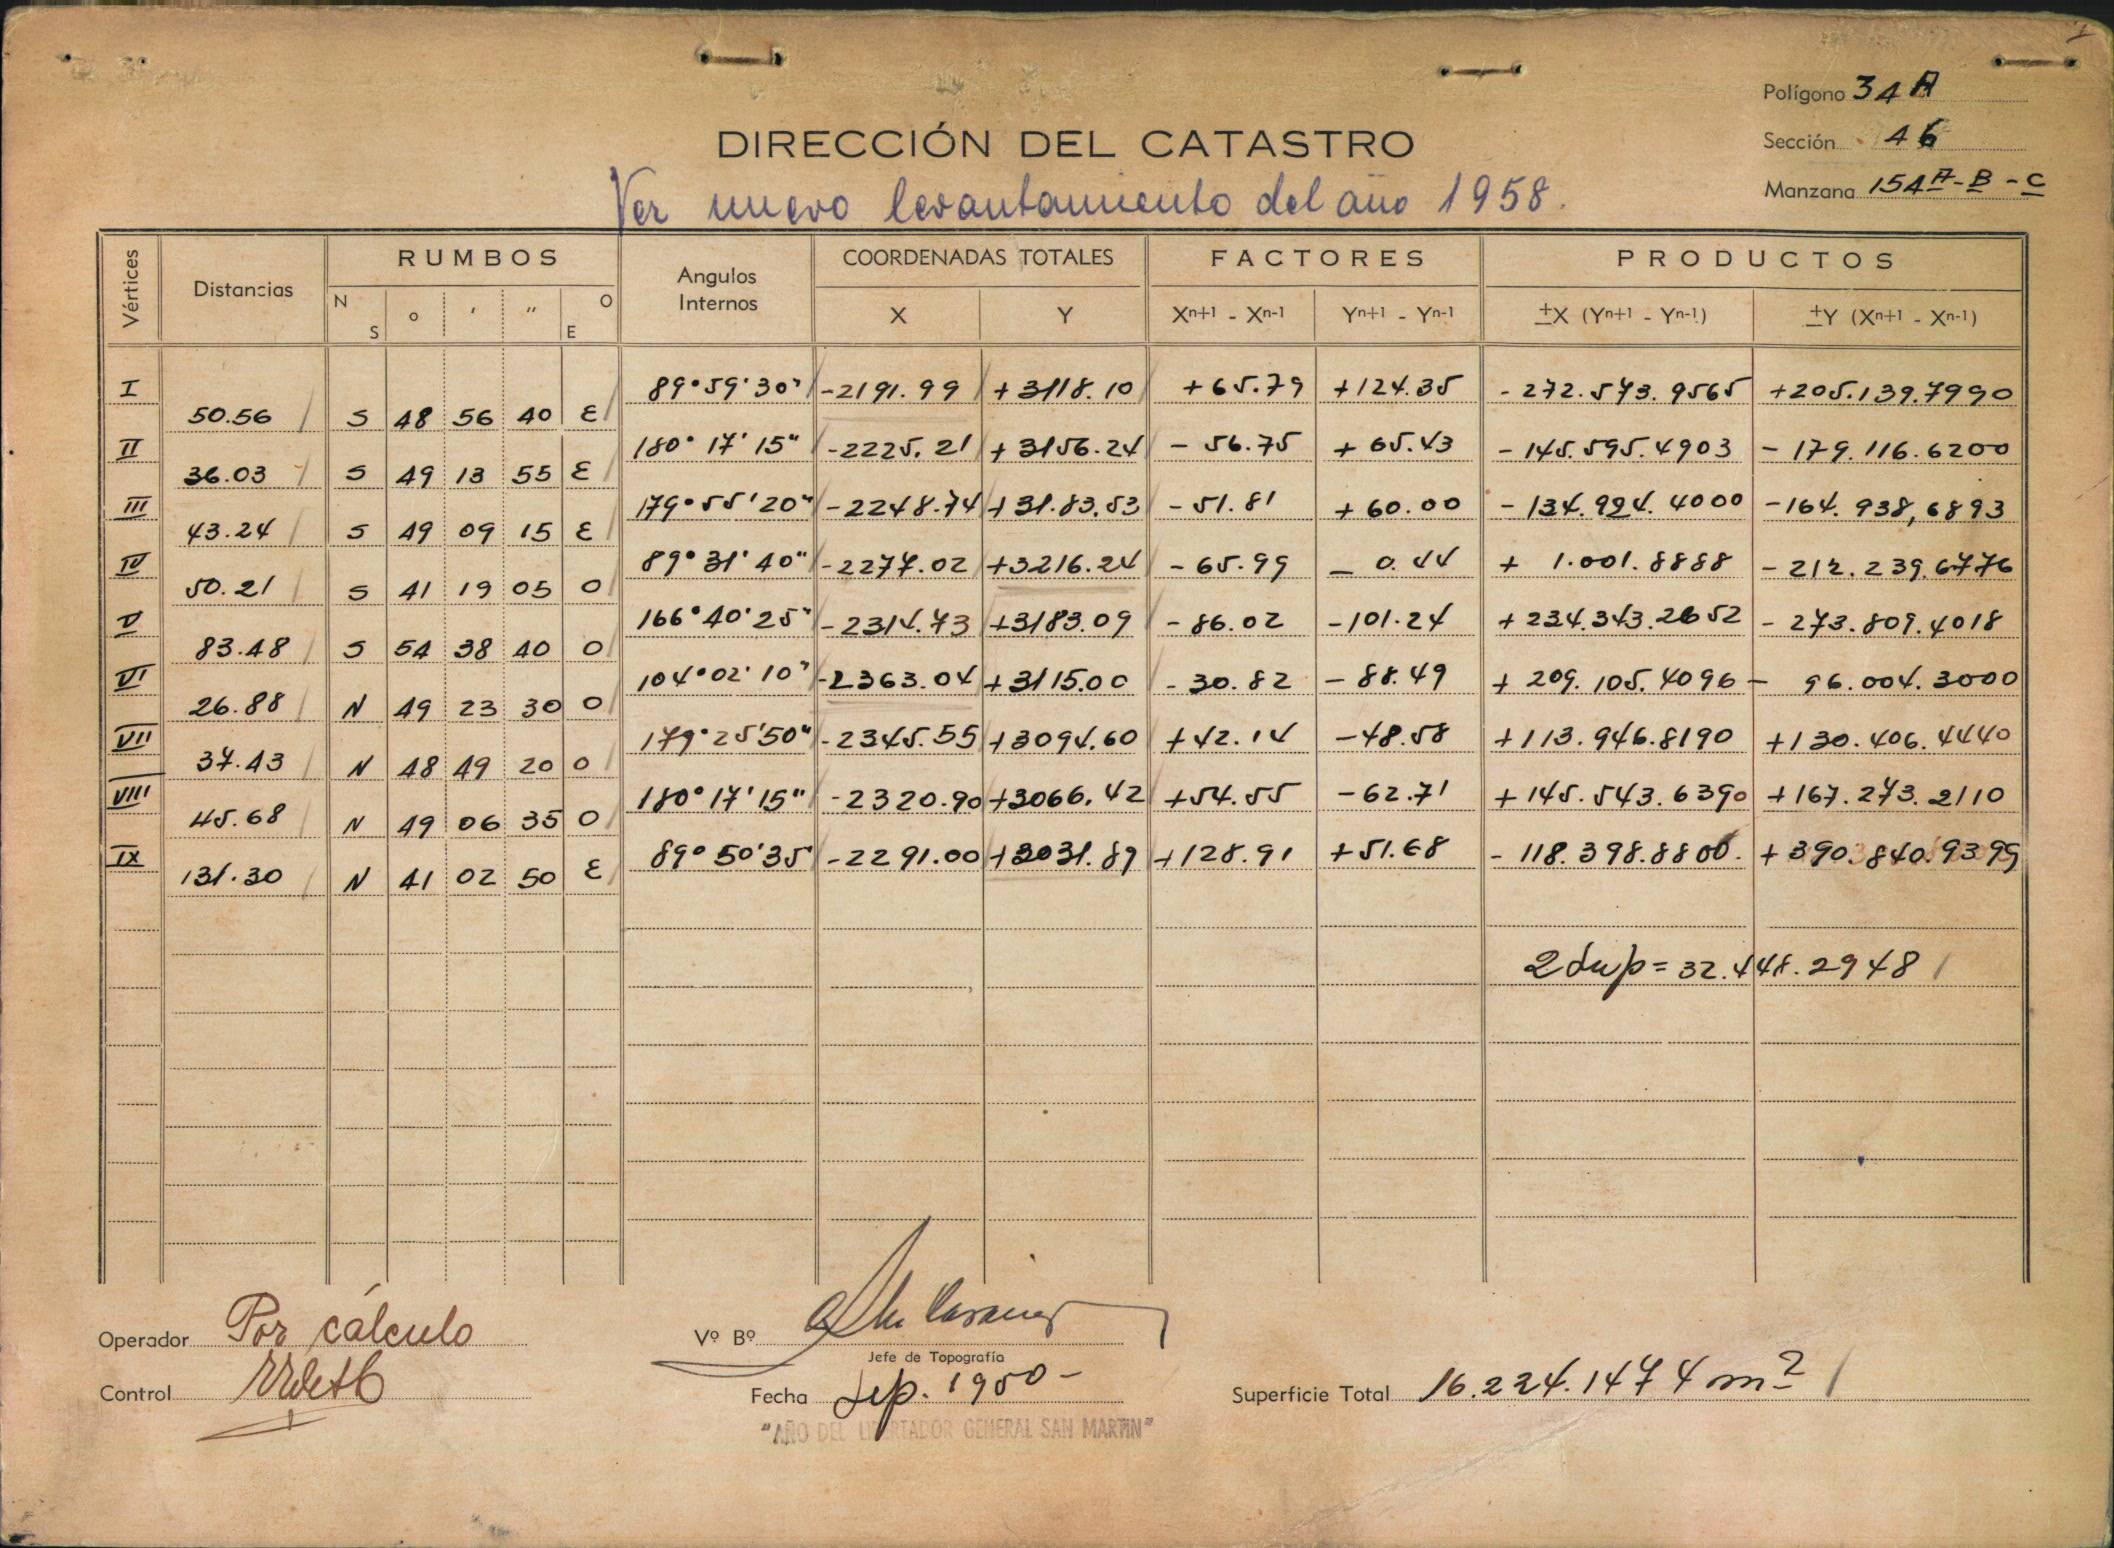 Polígono 34 A
DIRECCIÓN DEL CATASTRO
Sección 46
Ver nuevo levantamiento del año 1958.
Manzana 154 A - B - C
Vértices Distancias RUMBOS Angulos Internos COORDENADAS TOTALES FACTORES PRODUCTOS
N S o ' " O E X Y Xn+1 - Xn-1 Yn+1 - Yn-1 ±X (Yn+1 - Yn-1) ±Y (Xn+1 - Xn-1)
I 89°59'30" -2191.99 +3118.10 +65.79 +124.35 -272.573.9565 +205.139.7990
50.56 S 48 56 40 E
II 180°17'15" -2225.21 +3156.24 -56.75 +65.43 -145.595.4903 -179.116.6200
36.03 S 49 13 55 E
III 179°55'20" -2248.74 +31.83.53 -51.81 +60.00 -134.924.4000 -164.938,6893
43.24 S 49 09 15 E
IV 89°31'40" -2277.02 +3216.24 -65.99 -0.44 +1.001.8888 -212.239.6776
50.21 S 41 19 05 O
V 166°40'25" -2314.73 +3183.09 -86.02 -101.24 +234.343.2652 -273.809.4018
83.48 S 54 38 40 O
VI 104°02'10" -2363.04 +3115.00 -30.82 -88.49 +209.105.4096 -96.004.3000
26.88 N 49 23 30 O
VII 179°25'50" -2345.55 +3094.60 +42.14 -48.58 +113.946.8190 +130.406.4440
37.43 N 48 49 20 O
VIII 180°17'15" -2320.90 +3066.42 +54.55 -62.71 +145.543.6390 +167.273.2110
45.68 N 49 06 35 O
IX 89°50'35" -2291.00 +3031.89 +128.91 +51.68 -118.398.8800. +390.840.9399
131.30 N 41 02 50 E
2 Sup = 32.448.2948
Operador Por cálculo
Vº Bº
Jefe de Topografía
Control
Fecha Sep. 1950-
Superficie Total 16.224.1474 m2
"AÑO DEL LIBERTADOR GENERAL SAN MARTIN"